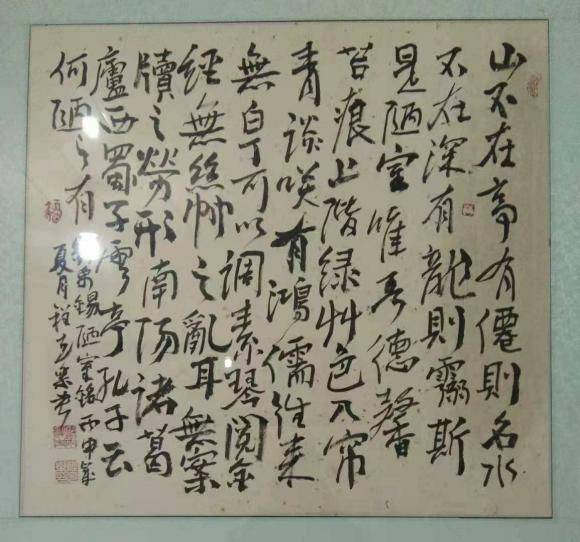 山不在高有僊則名水
不在深有龍則靈斯
是陋室唯吾德馨
苔痕上階緑艸色入帘
青談咲有鴻儒往来
無白丁可以調素琴閲金
經無絲竹之亂耳無案
牘之勞形南陽諸葛
廬西蜀子雲亭孔子云
何陋之有
劉禹錫陋室銘丙申年
夏月程